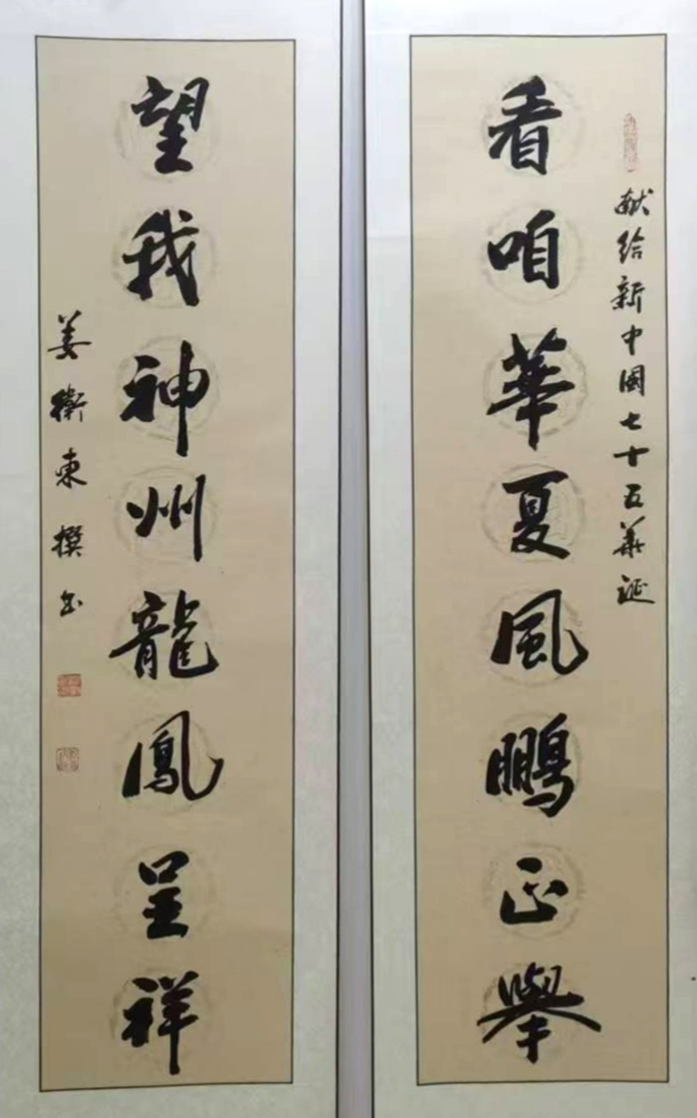 献给新中國七十五華诞
看咱華夏風鵬正舉
望我神州龍鳳呈祥
姜衛東撰书